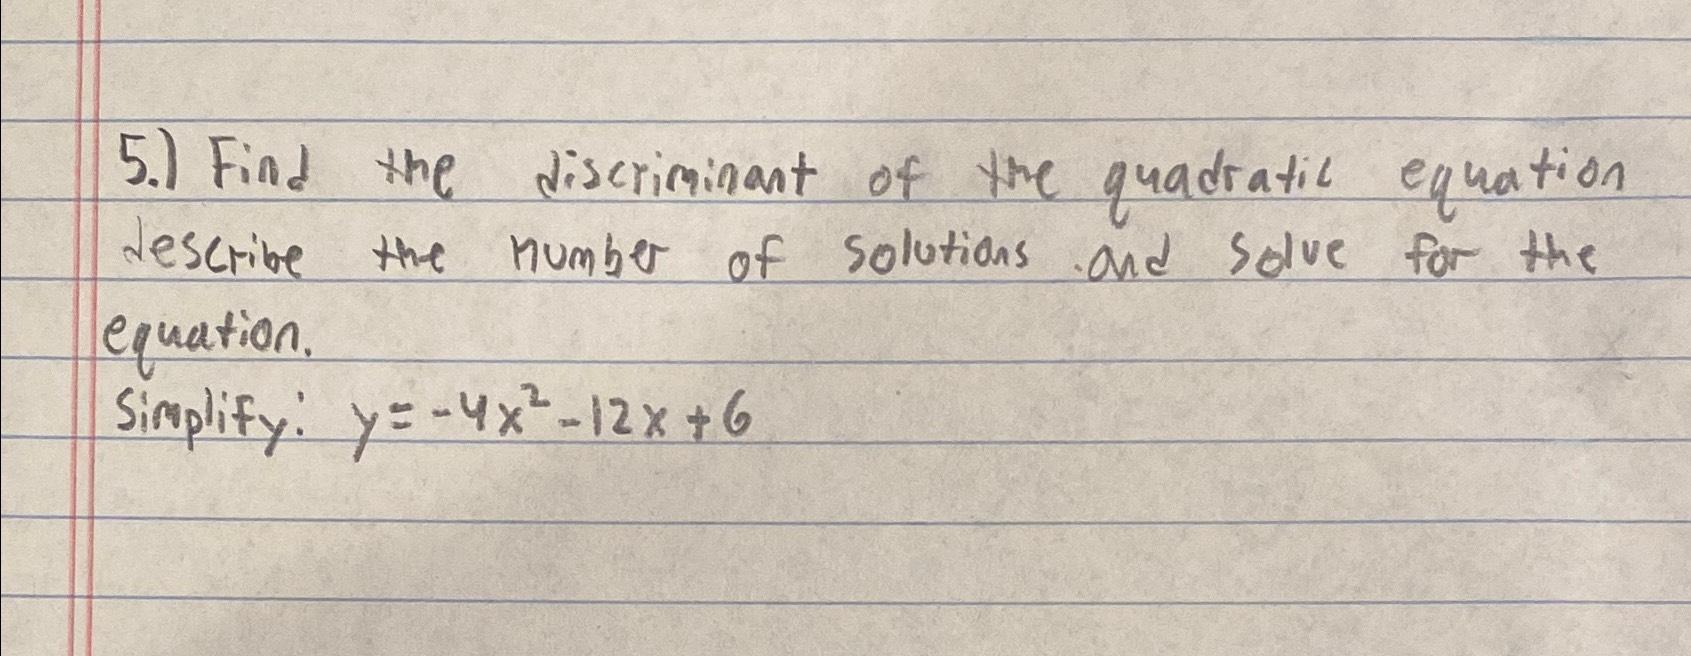 5.) Find the discriminant of the quadratic equation
describe the number of solutions and solve for the
equation.
Simplify: y = -4x² - 12x + 6